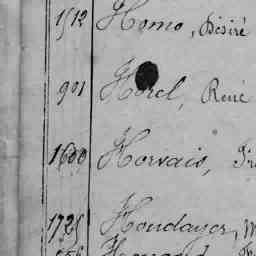 1512 Homo, Désiré
901 Horel, René
1600 Horvais,
1725 Houdayer,